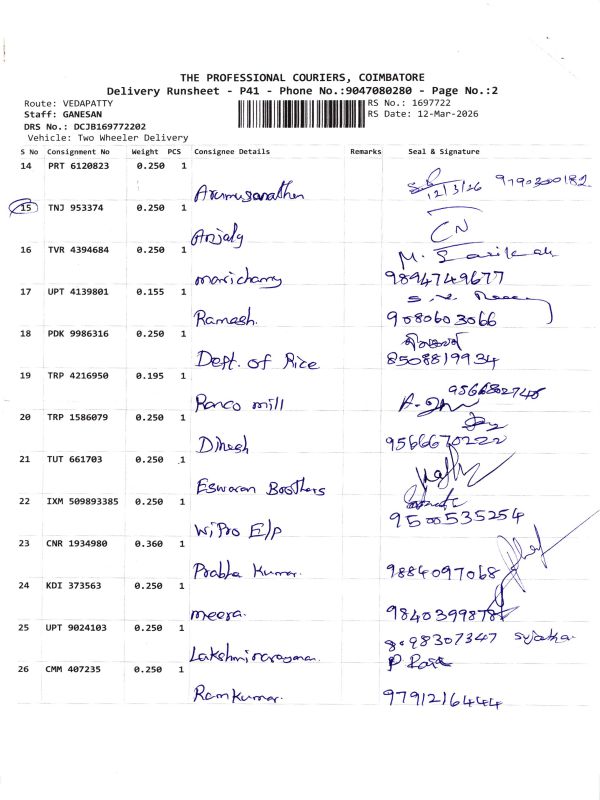 THE PROFESSIONAL COURIERS, COIMBATORE
Delivery Runsheet - P41 - Phone No.:9047080280 - Page No.:2
Route: VEDAPATTY
RS No.: 1697722
Staff: GANESAN
RS Date: 12-Mar-2026
DRS No.: DCJB169772202
Vehicle: Two Wheeler Delivery
S No Consignment No Weight PCS Consignee Details Remarks Seal & Signature
14 PRT 6120823 0.250 1
12/3/26
15 TNJ 953374 0.250 1
Anjaly CN
16 TVR 4394684 0.250 1
M.
marichamy 9894749677
17 UPT 4139801 0.155 1
Ramash. 9080603066
18 PDK 9986316 0.250 1
Dept. of Rice 8508819934
19 TRP 4216950 0.195 1
Ranco mill
20 TRP 1586079 0.250 1
Dinesh 9566670222
21 TUT 661703 0.250 1
Eswaran Boothers
22 IXM 509893385 0.250 1
WiPro E/p 9500535254
23 CNR 1934980 0.360 1
Prabha Kumar. 9884097068
24 KDI 373563 0.250 1
meera. 9840399878
25 UPT 9024103 0.250 1
Sujatha
Lakshminarayanan.
26 CMM 407235 0.250 1
Ramkumar. 9791216444